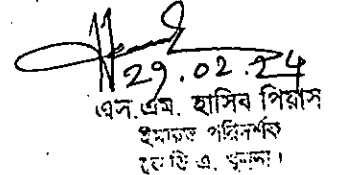 29.02.24
এস.এম. হাসিব পিয়াস
ইমারত পরিদর্শক
কে ডি এ, খুলনা।